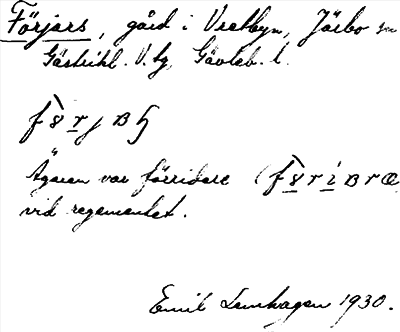 Förjers, gård i Vretbyn, Järbo sn
Gästrikl. V. tg, Gävleb. l.
Ägaren var förridare
vid regementet.
Emil Lenhagen 1930.